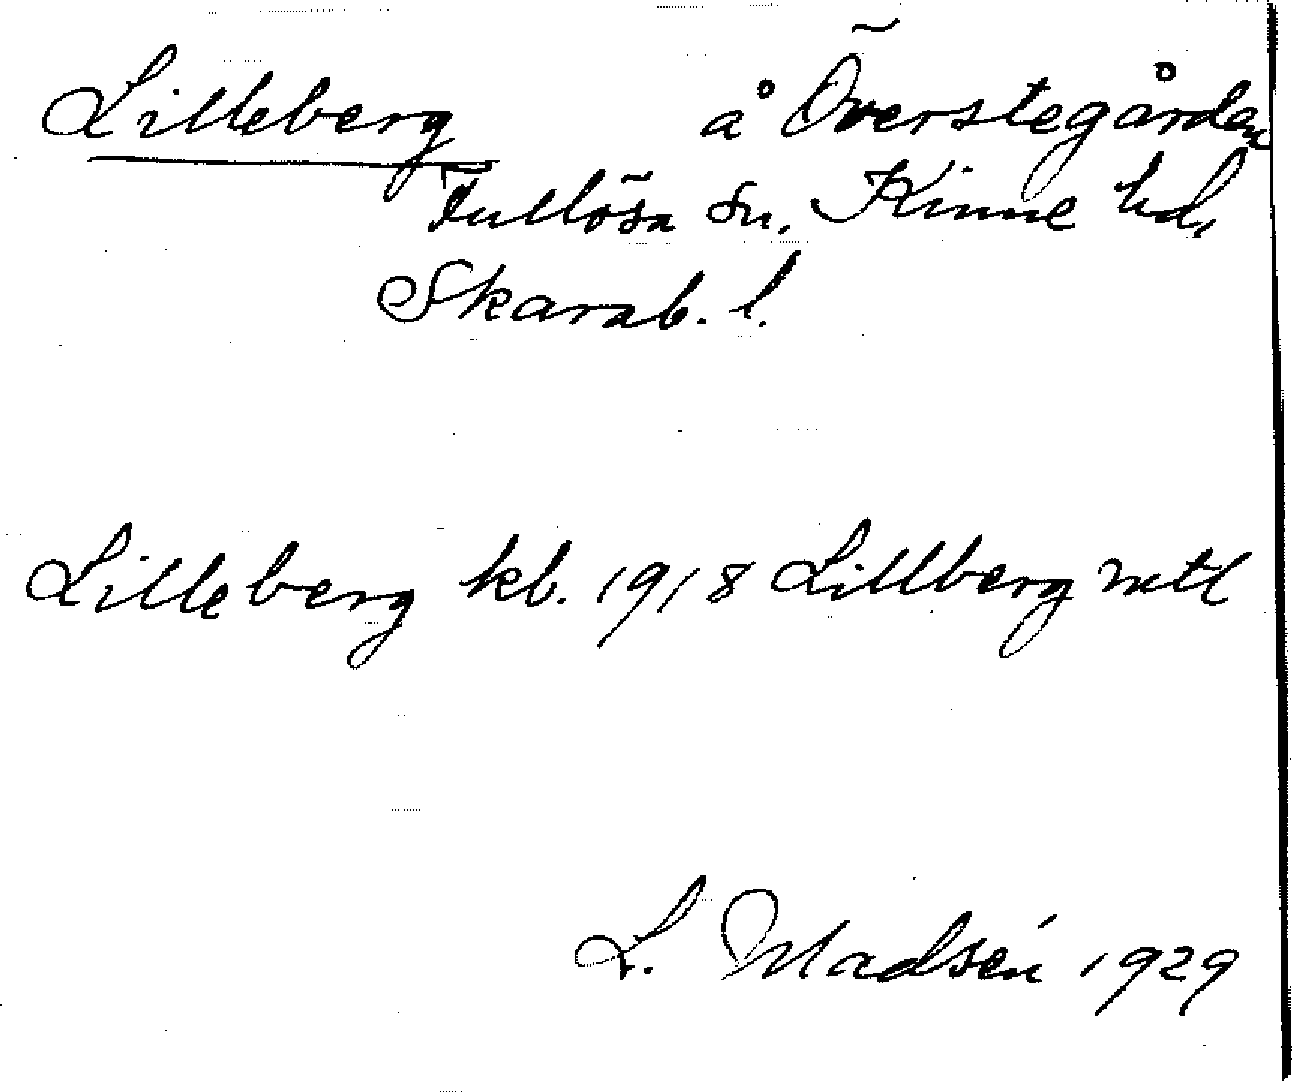 Lilleberg å Överstegården
Fullösa sn. Kinne hd.
Skarab. l.
Lilleberg kb. 1918 Lillberg mtl
L. Madsén 1929